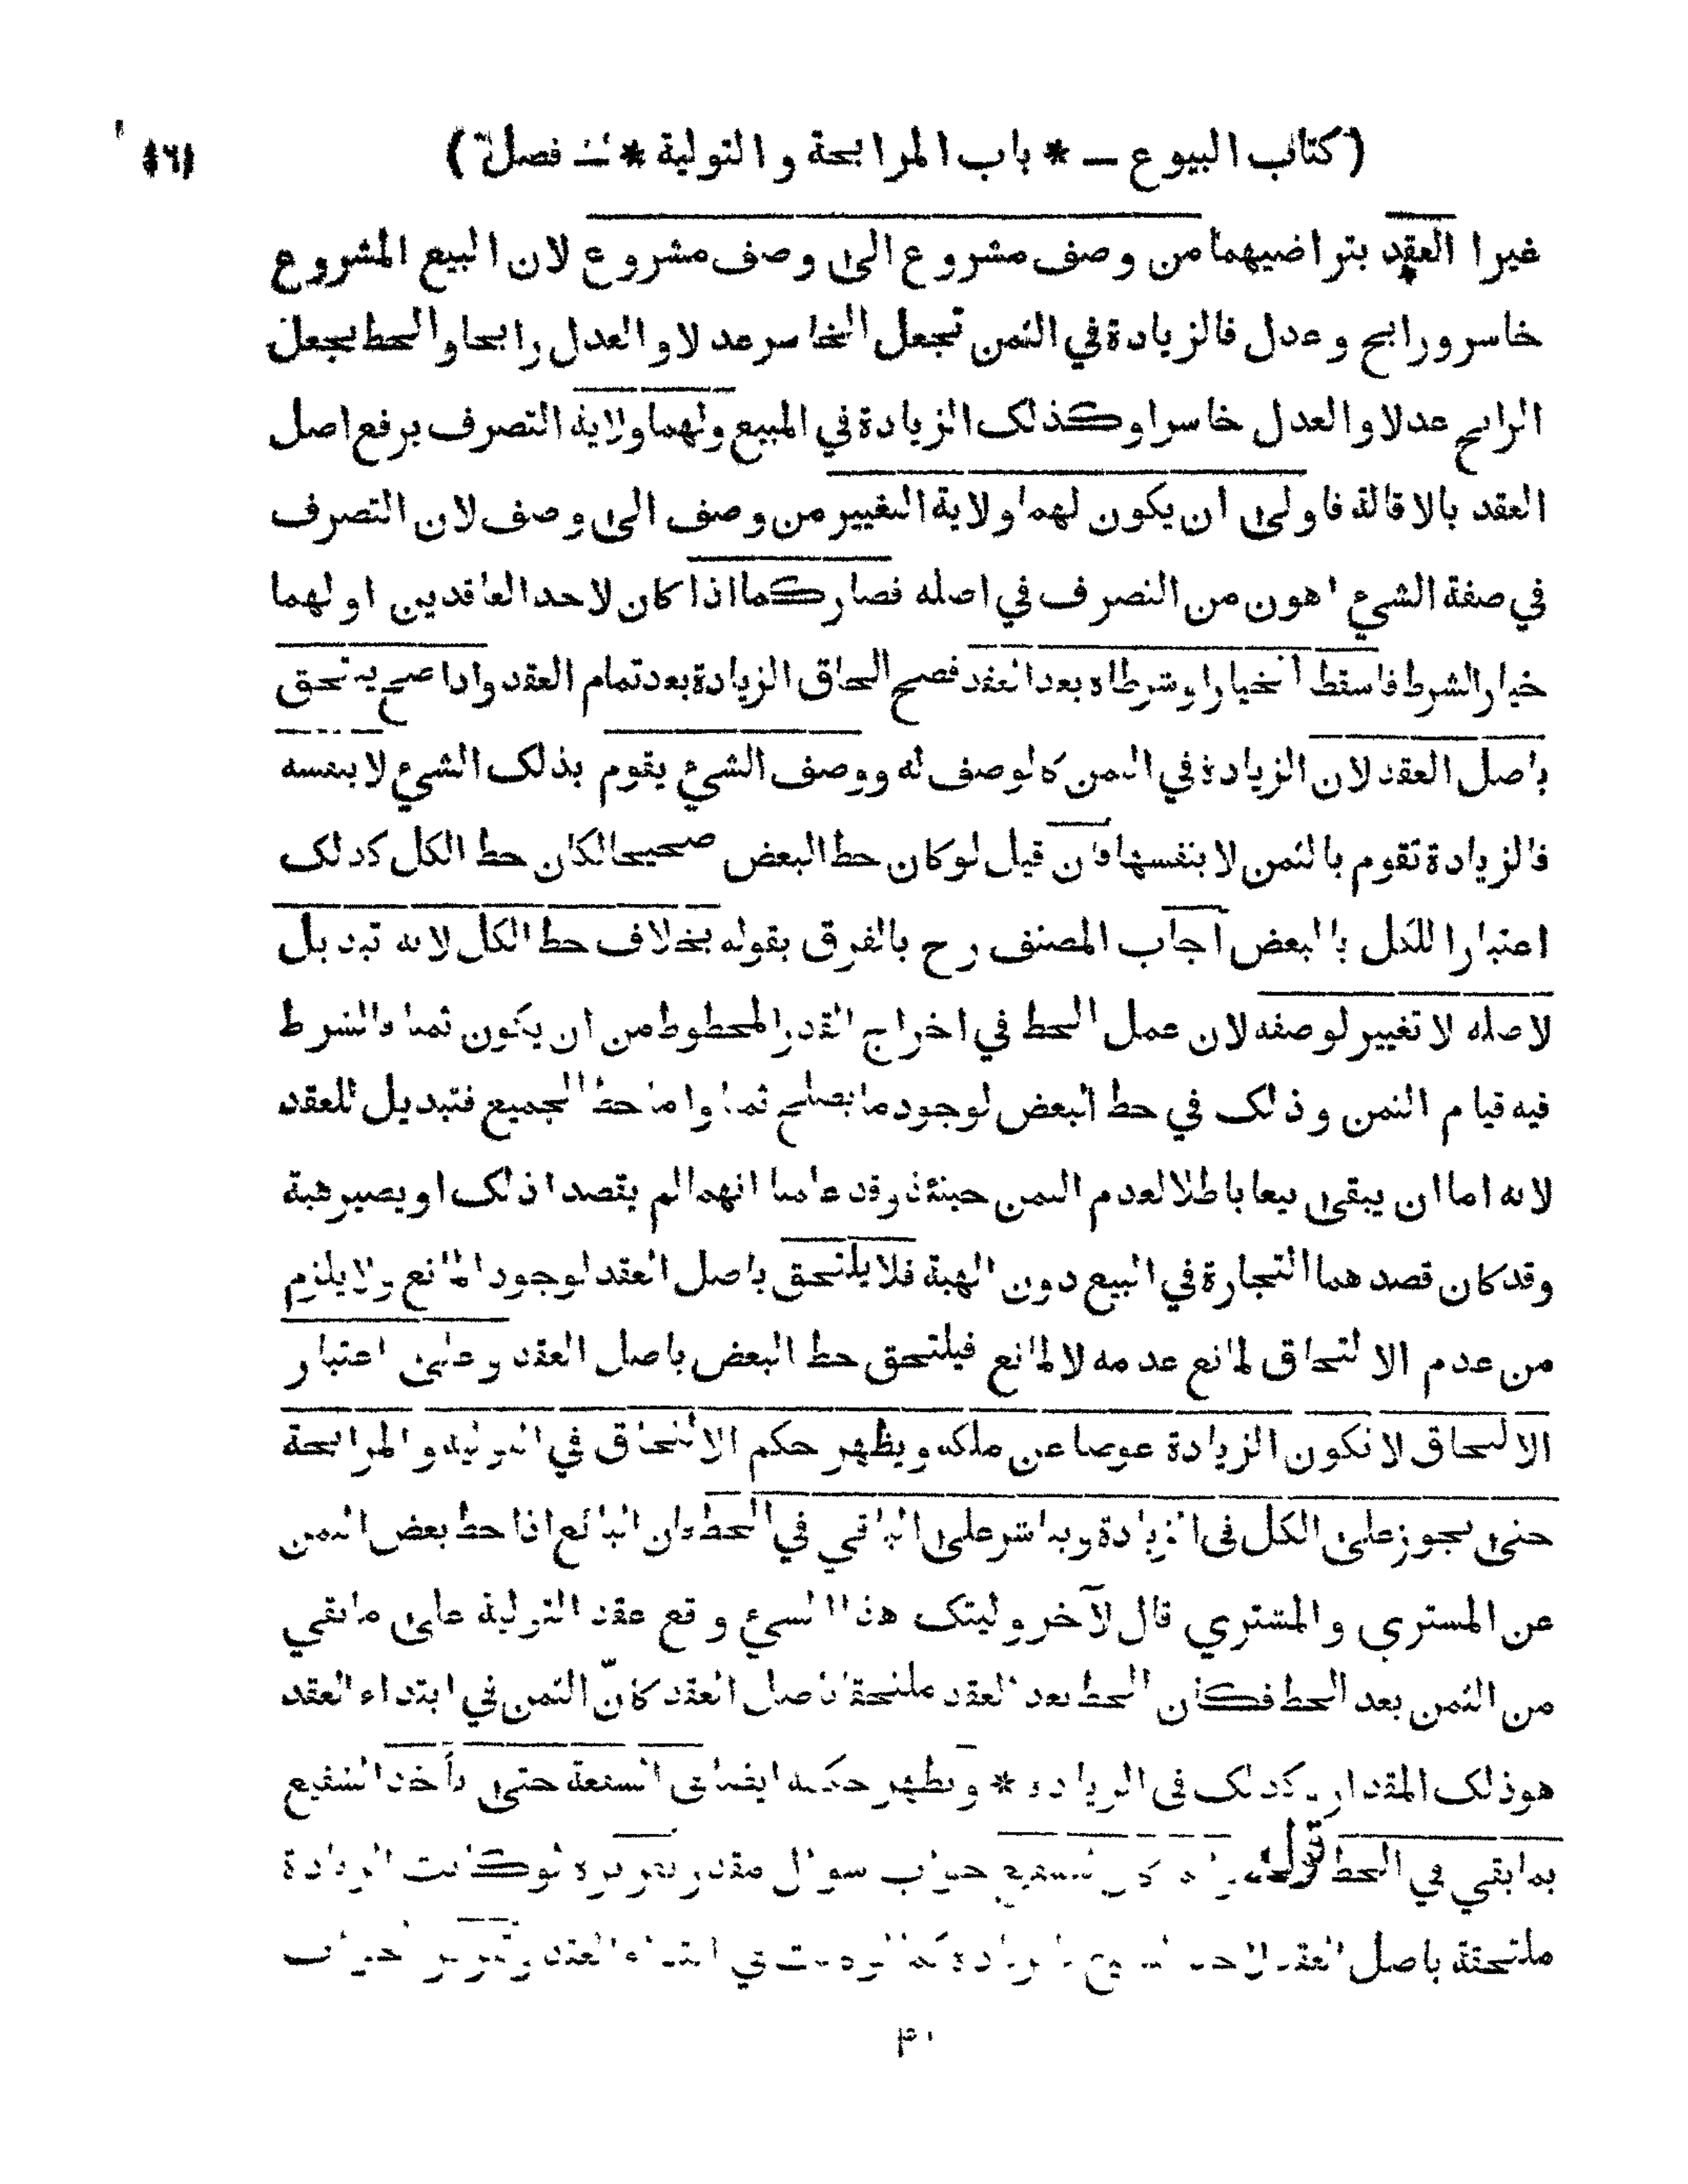 (كتاب البيوع — * باب المرابحة والتولية * — فصل)
غيرا العقد بتراضيهما من وصف مشروع الى وصف مشروع لان البيع المشروع
خاسر ورابح وعدل فالزيادة في الثمن تجعل الخاسر عدلا والعدل رابحا والحط يجعل
الرابح عدلا والعدل خاسرا وكذلك الزيادة في المبيع ولهما ولاية التصرف برفع اصل
العقد بالاقالة فاولى ان يكون لهما ولاية التغيير من وصف الى وصف لان التصرف
في صفة الشيء اهون من التصرف في اصله فصار كما اذا كان لاحد العاقدين او لهما
خيار الشرط فاسقط الخيار او شرطاه بعد العقد فصح الحاق الزيادة بعد تمام العقد واذا صح يلتحق
باصل العقد لان الزيادة في الثمن كالوصف له ووصف الشيء يقوم بذلك الشيء لا بنفسه
فالزيادة تقوم بالثمن لا بنفسها فان قيل لو كان حط البعض صحيحا لكان حط الكل كذلك
اعتبارا للكل بالبعض اجاب المصنف رح بالفرق بقوله بخلاف حط الكل لانه تبديل
لاصله لا تغيير لوصفه لان عمل الحط في اخراج القدر المحطوط من ان يكون ثمنا فالشرط
فيه قيام الثمن وذلك في حط البعض لوجود ما يصلح ثمنا واما حط الجميع فتبديل للعقد
لانه اما ان يبقى بيعا باطلا لعدم الثمن حينئذ وقد علمنا انهما لم يقصدا ذلك او يصير هبة
وقد كان قصدهما التجارة في البيع دون الهبة فلا يلتحق باصل العقد لوجود المانع ولا يلزم
من عدم الالتحاق لمانع عدمه لا لمانع فيلتحق حط البعض باصل العقد وعلى اعتبار
الالتحاق لا تكون الزيادة عوضا عن ملكه ويظهر حكم الالتحاق في التولية والمرابحة
حتى يجوز على الكل في الزيادة ويباشر على الباقي في الحط فان البائع اذا حط بعض الثمن
عن المشتري والمشتري قال لآخر وليتك هذا الشيء وقع عقد التولية على ما بقي
من الثمن بعد الحط فكان الحط بعد العقد ملتحقا باصل العقد كانّ الثمن في ابتداء العقد
هو ذلك المقدار وكذلك في الزيادة * ويظهر حكمه ايضا في الشفعة حتى يأخذ الشفيع
بما بقي في الحط قوله كان للشفيع جواب سوال مقدر تقريره لو كانت الزيادة
ملتحقة باصل العقد لاخذ الشفيع بالزيادة كما لو كانت في ابتداء العقد وتقرير الجواب